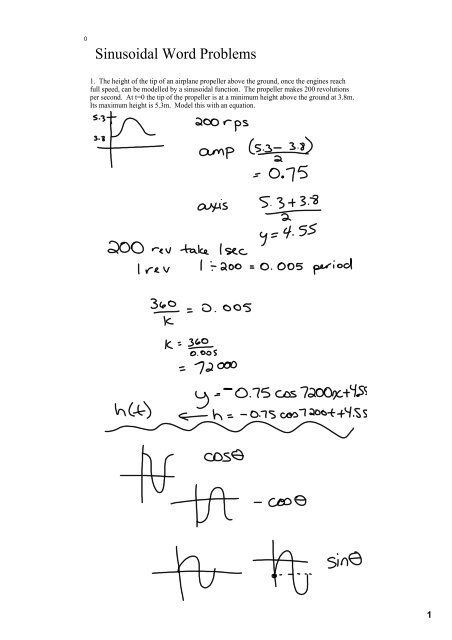 0
Sinusoidal Word Problems
1. The height of the tip of an airplane propeller above the ground, once the engines reach
full speed, can be modelled by a sinusoidal function. The propeller makes 200 revolutions
per second. At t=0 the tip of the propeller is at a minimum height above the ground at 3.8m.
Its maximum height is 5.3m. Model this with an equation.
5.3
3.8
200 rps
amp (5.3 - 3.8)
2
= 0.75
axis 5.3 + 3.8
2
y = 4.55
200 rev take 1 sec
1 rev 1 ÷ 200 = 0.005 period
360
K
= 0.005
K = 360
0.005
= 72000
y = -0.75 cos 7200x + 4.55
h(t) ← h = -0.75 cos 7200t + 4.55
cosθ
- cosθ
sinθ
1